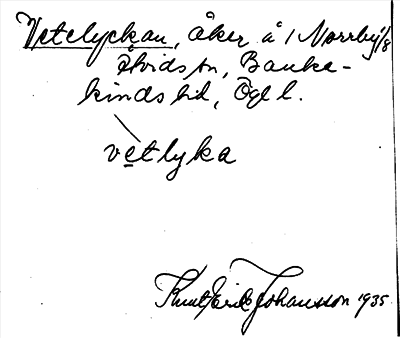 Vetelyckan, åker å 1 Norrby 1/8
Åtvids sn, Banke-
kinds hd, Ögl l.
vetlyka
Knut Erik Johansson 1935